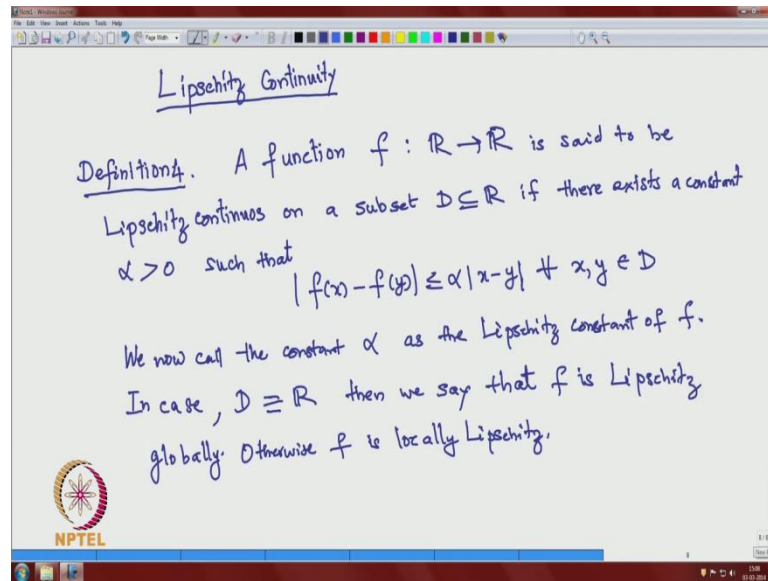 Note1 - Windows Journal
File Edit View Insert Actions Tools Help
Page Width
Lipschitz Continuity
Definition4. A function f : ℝ → ℝ is said to be
Lipschitz continuos on a subset D ⊆ ℝ if there exists a constant
α > 0 such that
| f(x) - f(y)| ≤ α | x - y | ∀ x, y ∈ D
We now call the constant α as the Lipschitz constant of f.
In case, D ≡ ℝ then we say that f is Lipschitz
globally. Otherwise f is locally Lipschitz.
NPTEL
8
15:08
03-03-2014